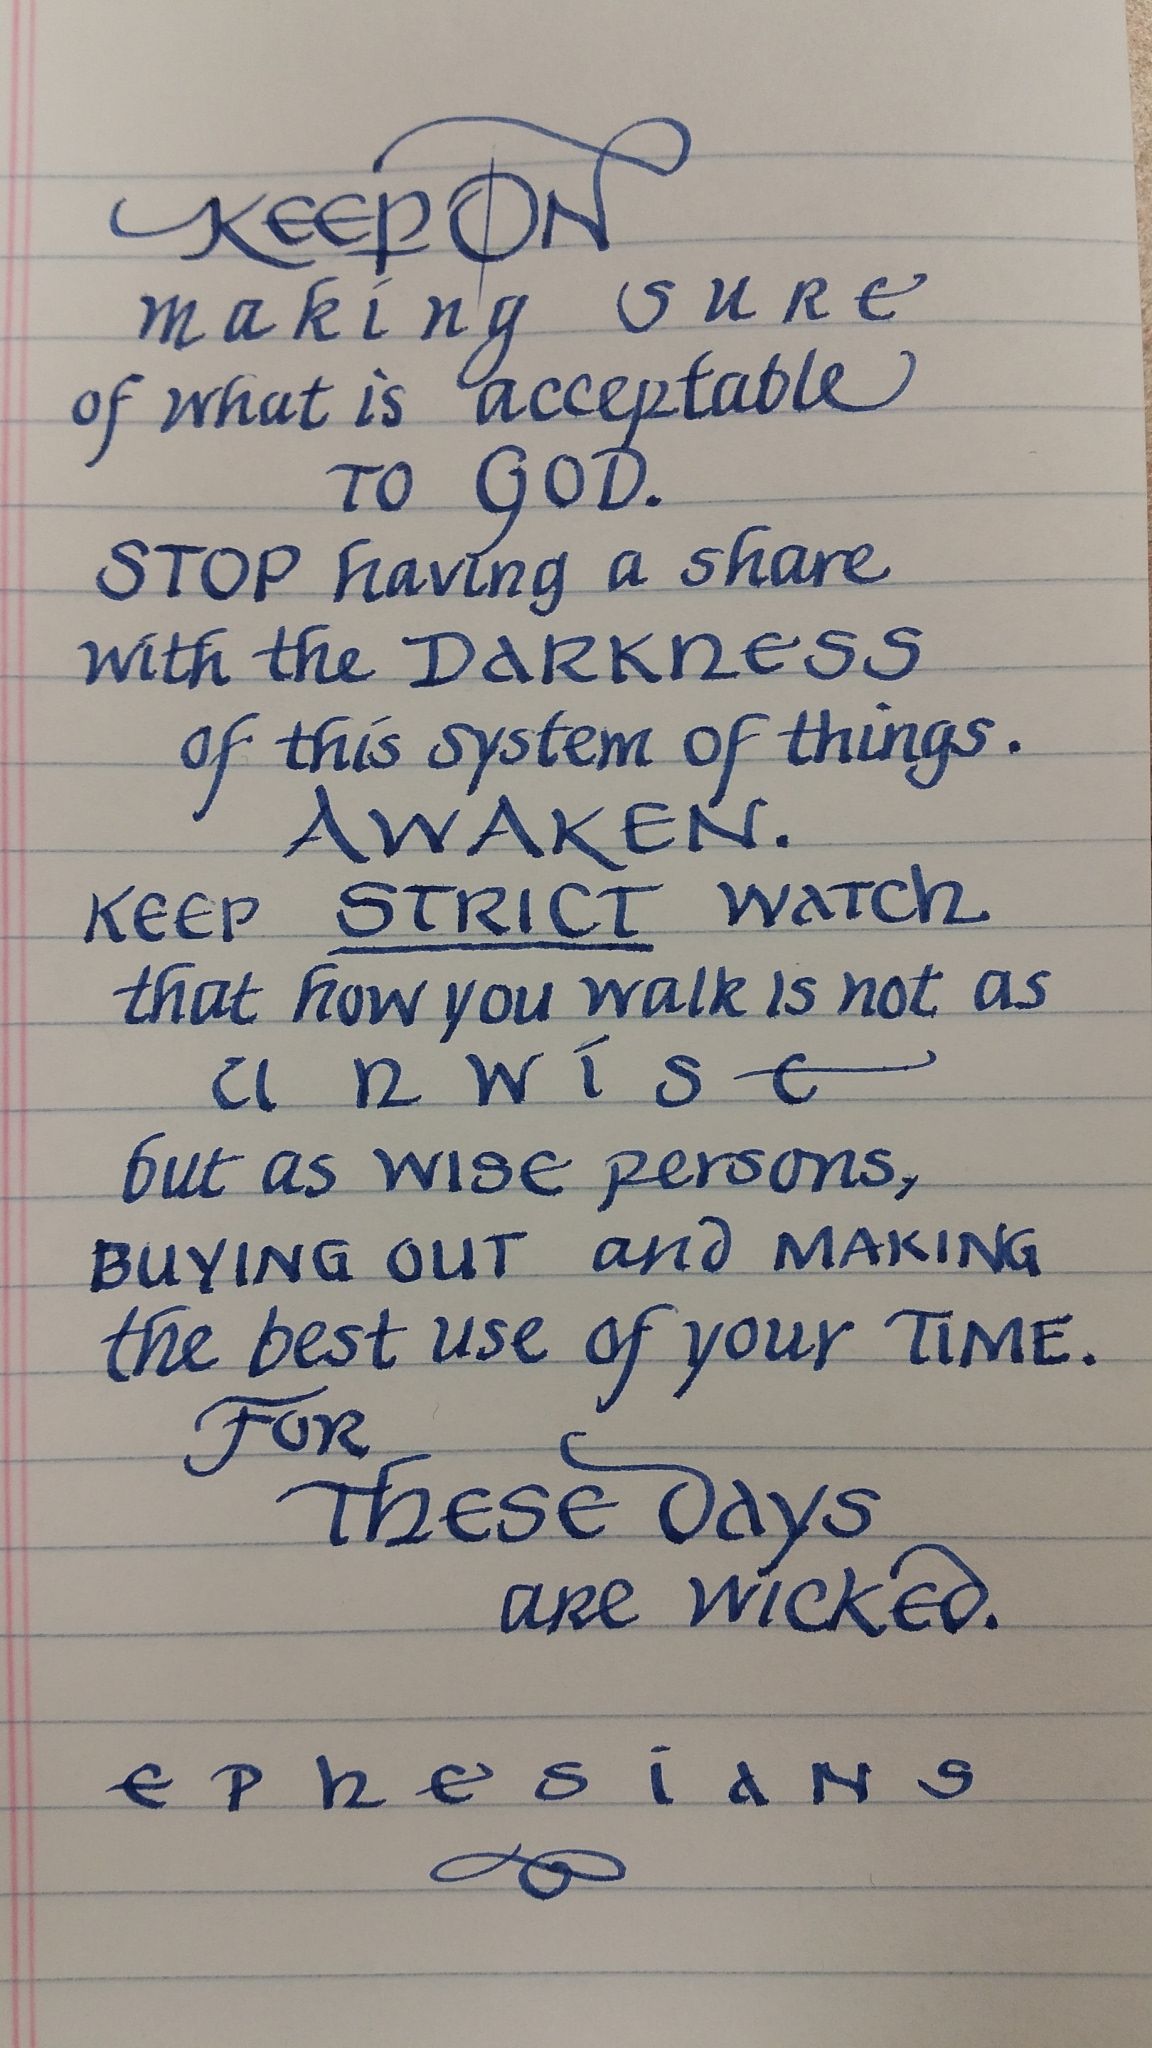 KEEP ON
making sure
of what is acceptable
TO GOD.
STOP having a share
with the DARKNESS
of this system of things.
AWAKEN.
KEEP STRICT WATCH
that how you walk is not as
unwise
but as WISE persons,
BUYING OUT and MAKING
the best use of your TIME.
FOR
THESE DAYS
are WICKED.
ephesians